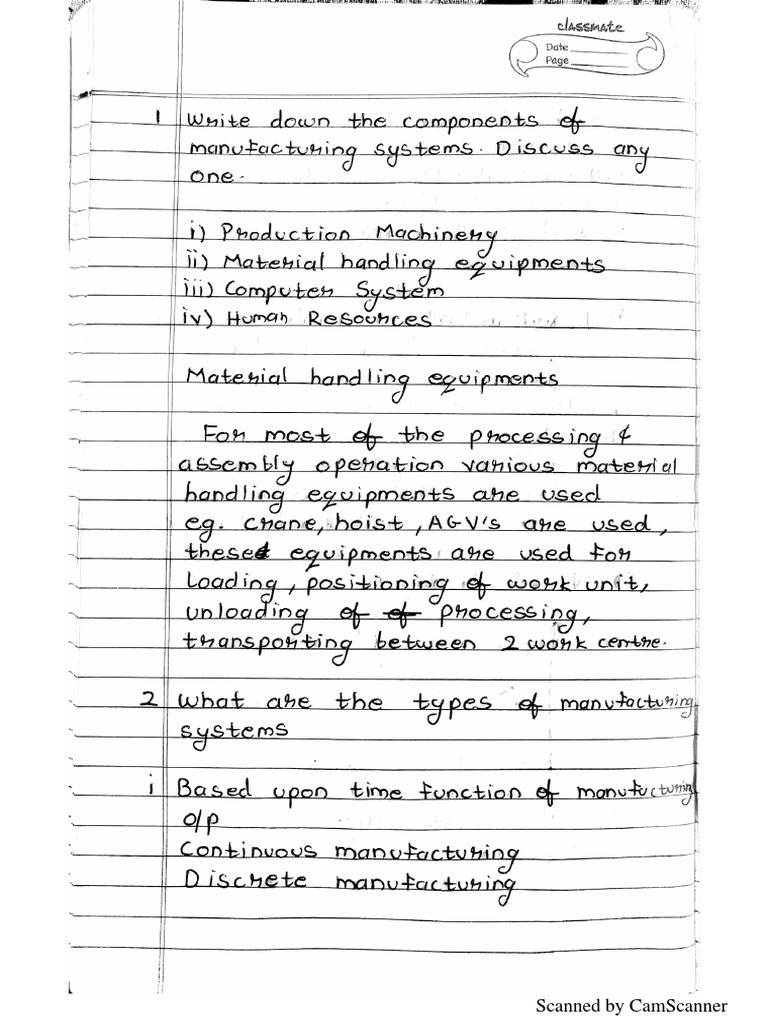 classmate
Date
Page
1 Write down the components of
manufacturing systems. Discuss any
one.
i) Production Machinery
ii) Material handling equipments
iii) Computer System
iv) Human Resources
Material handling equipments
For most of the processing &
assembly operation various material
handling equipments are used
eg. crane, hoist, AGV's are used,
these equipments are used for
loading, positioning of work unit,
unloading of of processing,
transporting between 2 work centre.
2 What are the types of manufacturing
systems
i Based upon time function of manufucturing
o/p
Continuous manufacturing
Discrete manufacturing
Scanned by CamScanner